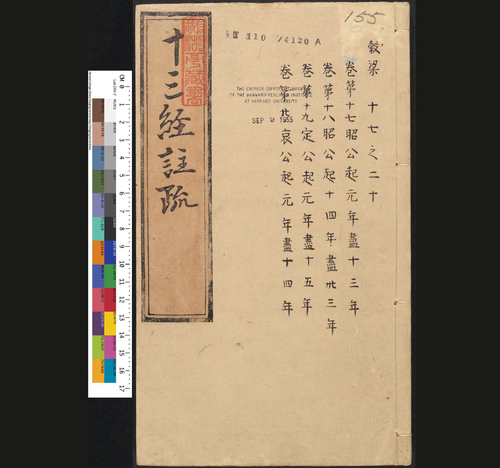 155
穀梁 十七之二十
卷第十七昭公起元年盡十三年
卷第十八昭公起十四年盡卅三年
卷第十九定公起元年盡十五年
卷第廿哀公起元年盡十四年
THE CHINESE-JAPANESE LIBRARY
OF THE HARVARD-YENCHING INSTITUTE
AT HARVARD UNIVERSITY
SEP 1955
十三經註疏
CM 0 1 2 3 4 5 6 7 8 9 10 11 12 13 14 15 16 17